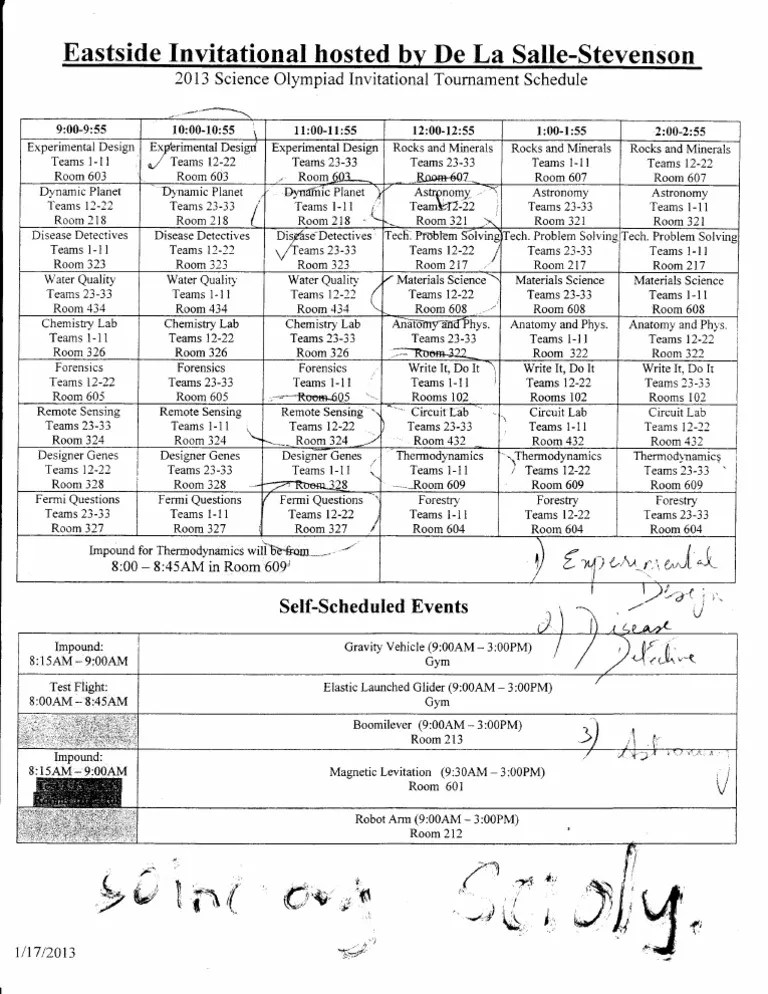 Eastside Invitational hosted by De La Salle-Stevenson
2013 Science Olympiad Invitational Tournament Schedule
9:00-9:55 10:00-10:55 11:00-11:55 12:00-12:55 1:00-1:55 2:00-2:55
Experimental Design Experimental Design Experimental Design Rocks and Minerals Rocks and Minerals Rocks and Minerals
Teams 1-11 Teams 12-22 Teams 23-33 Teams 23-33 Teams 1-11 Teams 12-22
Room 603 Room 603 Room 603 Room 607 Room 607 Room 607
Dynamic Planet Dynamic Planet Dynamic Planet Astronomy Astronomy Astronomy
Teams 12-22 Teams 23-33 Teams 1-11 Teams 12-22 Teams 23-33 Teams 1-11
Room 218 Room 218 Room 218 Room 321 Room 321 Room 321
Disease Detectives Disease Detectives Disease Detectives Tech. Problem Solving Tech. Problem Solving Tech. Problem Solving
Teams 1-11 Teams 12-22 Teams 23-33 Teams 12-22 Teams 23-33 Teams 1-11
Room 323 Room 323 Room 323 Room 217 Room 217 Room 217
Water Quality Water Quality Water Quality Materials Science Materials Science Materials Science
Teams 23-33 Teams 1-11 Teams 12-22 Teams 12-22 Teams 23-33 Teams 1-11
Room 434 Room 434 Room 434 Room 608 Room 608 Room 608
Chemistry Lab Chemistry Lab Chemistry Lab Anatomy and Phys. Anatomy and Phys. Anatomy and Phys.
Teams 1-11 Teams 12-22 Teams 23-33 Teams 23-33 Teams 1-11 Teams 12-22
Room 326 Room 326 Room 326 Room 322 Room 322 Room 322
Forensics Forensics Forensics Write It, Do It Write It, Do It Write It, Do It
Teams 12-22 Teams 23-33 Teams 1-11 Teams 1-11 Teams 12-22 Teams 23-33
Room 605 Room 605 Room 605 Rooms 102 Rooms 102 Rooms 102
Remote Sensing Remote Sensing Remote Sensing Circuit Lab Circuit Lab Circuit Lab
Teams 23-33 Teams 1-11 Teams 12-22 Teams 23-33 Teams 1-11 Teams 12-22
Room 324 Room 324 Room 324 Room 432 Room 432 Room 432
Designer Genes Designer Genes Designer Genes Thermodynamics Thermodynamics Thermodynamics
Teams 12-22 Teams 23-33 Teams 1-11 Teams 1-11 Teams 12-22 Teams 23-33
Room 328 Room 328 Room 328 Room 609 Room 609 Room 609
Fermi Questions Fermi Questions Fermi Questions Forestry Forestry Forestry
Teams 23-33 Teams 1-11 Teams 12-22 Teams 1-11 Teams 12-22 Teams 23-33
Room 327 Room 327 Room 327 Room 604 Room 604 Room 604
Impound for Thermodynamics will be from
8:00 – 8:45AM in Room 609
1) Experimental
Design
Self-Scheduled Events
2) Disease
Detective
Impound: Gravity Vehicle (9:00AM – 3:00PM)
8:15AM – 9:00AM Gym
Test Flight: Elastic Launched Glider (9:00AM – 3:00PM)
8:00AM – 8:45AM Gym
Boomilever (9:00AM – 3:00PM)
Room 213
3) Astronomy
Impound:
8:15AM – 9:00AM Magnetic Levitation (9:30AM – 3:00PM)
Room 601
Robot Arm (9:00AM – 3:00PM)
Room 212
Scioly.
1/17/2013